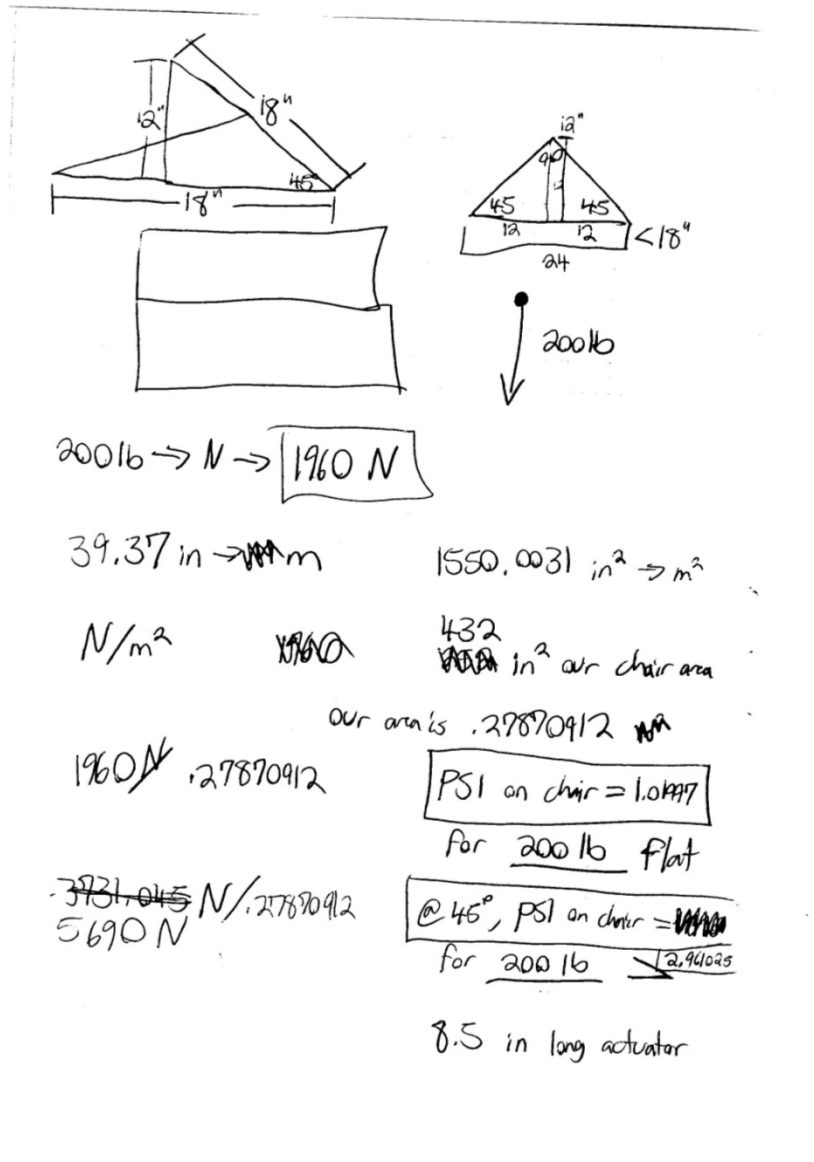 12"
18"
45°
18"
12"
90
45 45
12 12
<18"
24
200lb
200lb → N → 1960 N
39.37 in → m
1550.0031 in² → m²
N/m²
432
in² our chair area
our area is .27870912
1960 N/.27870912
PSI on chair = 1.01997
for 200 lb flat
3731.045 N/.27870912
5690 N
@ 45°, PSI on chair =
for 200 lb 2.961025
8.5 in long actuator